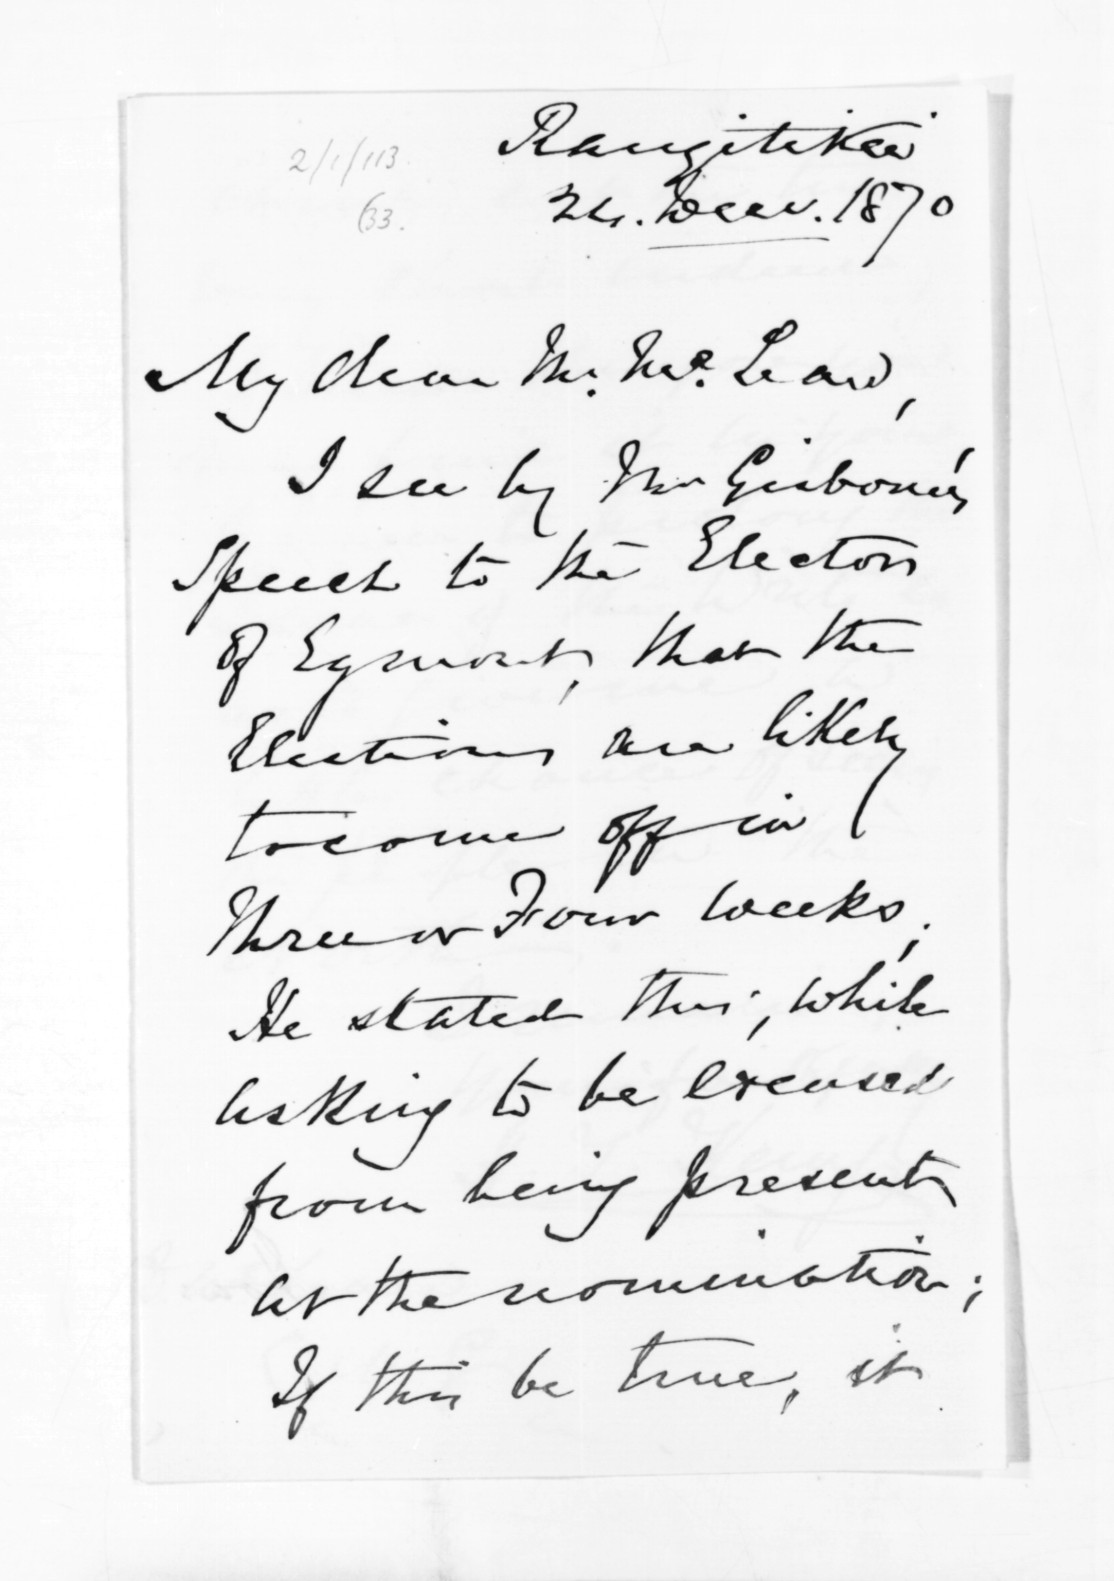 Rangitikei
2/1/113
24. Decr. 1870
(33.
My dear Mr. McLean,
I see by Mr Gisborne's
Speech to the Electors
of Egmont, that the
Elections are likely
to come off in
three or Four weeks,
He stated this, while
asking to be excused
from being present
at the nomination;
If this be true, it